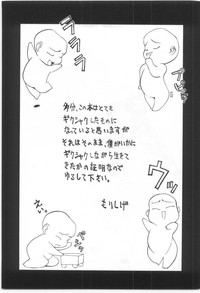 ラララ
多分、この本はとても
ギクシャクしたものに
なっていると思いますが
それはそのまま、僕がいかに
ギクシャクしながら生きて
きたかの証明なので
ゆるして下さい。
もりしげ
ウッ
えい。